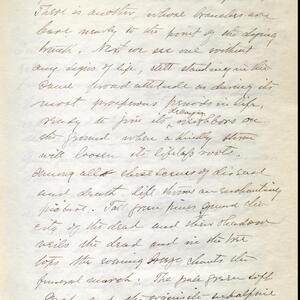 There is another whose branches are
bare nearly to the point of the dying
trunk. Next we see one without
any signs of life, still standing in the
same proud attitude as during its
most prosperous periods in life,
ready to join its decayed neighbors on
the ground when a kindly storm
will loosen its lifeless roots.
Among all these scenes of disease
and death life shows an enchanting
picture. Tall green pines guard the
city of the dead and their shadow
veils the dead and in the tree
tops the evening chants the
funeral march. The pale green soft
and the